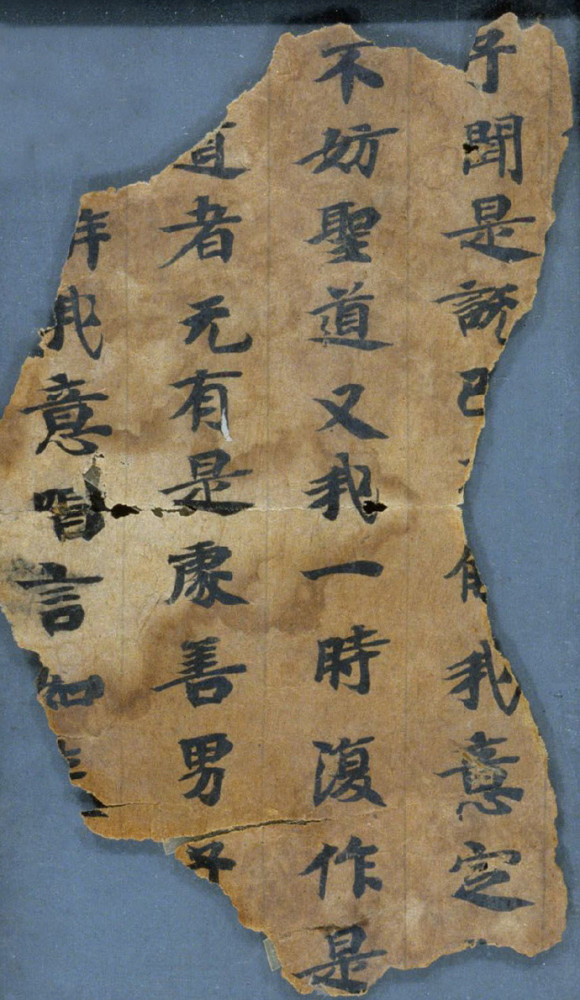 子聞是說已解我意定
不妨聖道又我一時復作是
道者无有是處善男子
解我意言如